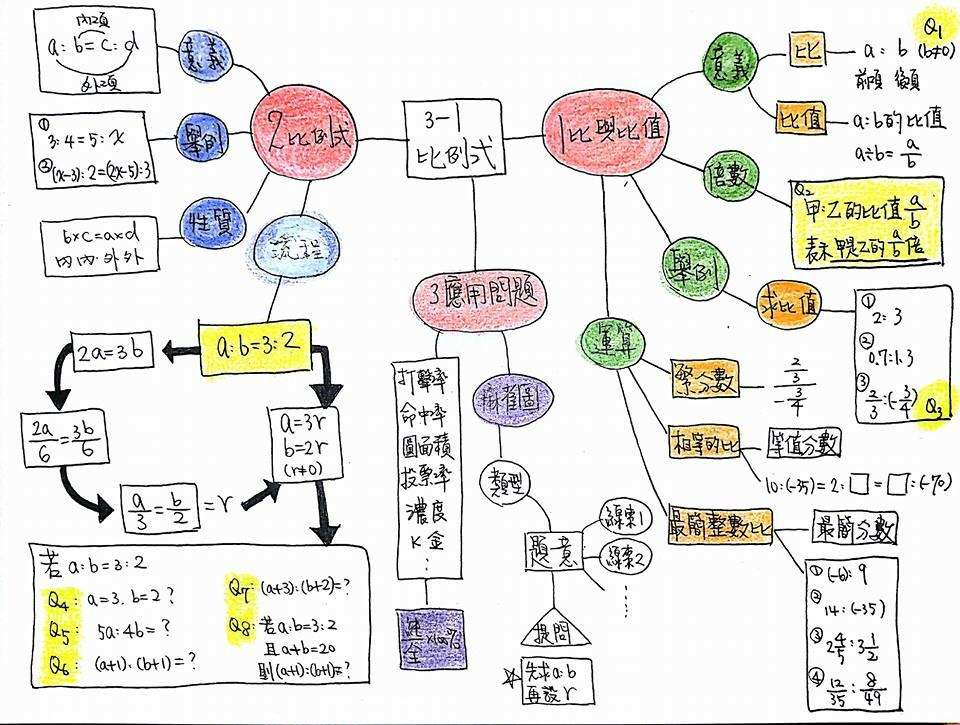 3-1
比例式
1比與比值
意義
比
a：b (b≠0)
Q1
前項 後項
比值
a：b的比值
a÷b=a/b
倍數
Q2
甲：乙的比值a/b
表示甲是乙的a/b倍
舉例
求比值
① 2：3
② 0.7：1.3
③ 2/3：(-3/4)
Q3
運算
繁分數
2/3
-3/4
相等的比
等值分數
10：(-35)=2：□=□：(-70)
最簡整數比
最簡分數
① (-6)：9
② 14：(-35)
③ 2 4/5：3 1/2
④ 12/35：8/49
2比例式
意義
內項
a：b=c：d
外項
舉例
① 3：4=5：x
② (x-3)：2=(2x-5)：3
性質
b×c=a×d
內內 外外
流程
a：b=3：2
2a=3b
2a/6=3b/6
a/3=b/2=r
a=3r
b=2r
(r≠0)
若 a：b=3：2
Q4：a=3. b=2？
Q5：5a：4b=？
Q6：(a+1)：(b+1)=？
Q7：(a+3)：(b+2)=？
Q8：若 a：b=3：2
且 a+b=20
則(a+1)：(b+1)=？
3應用問題
打擊率
命中率
圓面積
投票率
濃度
K金
×100%
麻雀圖
類型
題意
線索1
線索2
提問
先求a：b
再設r